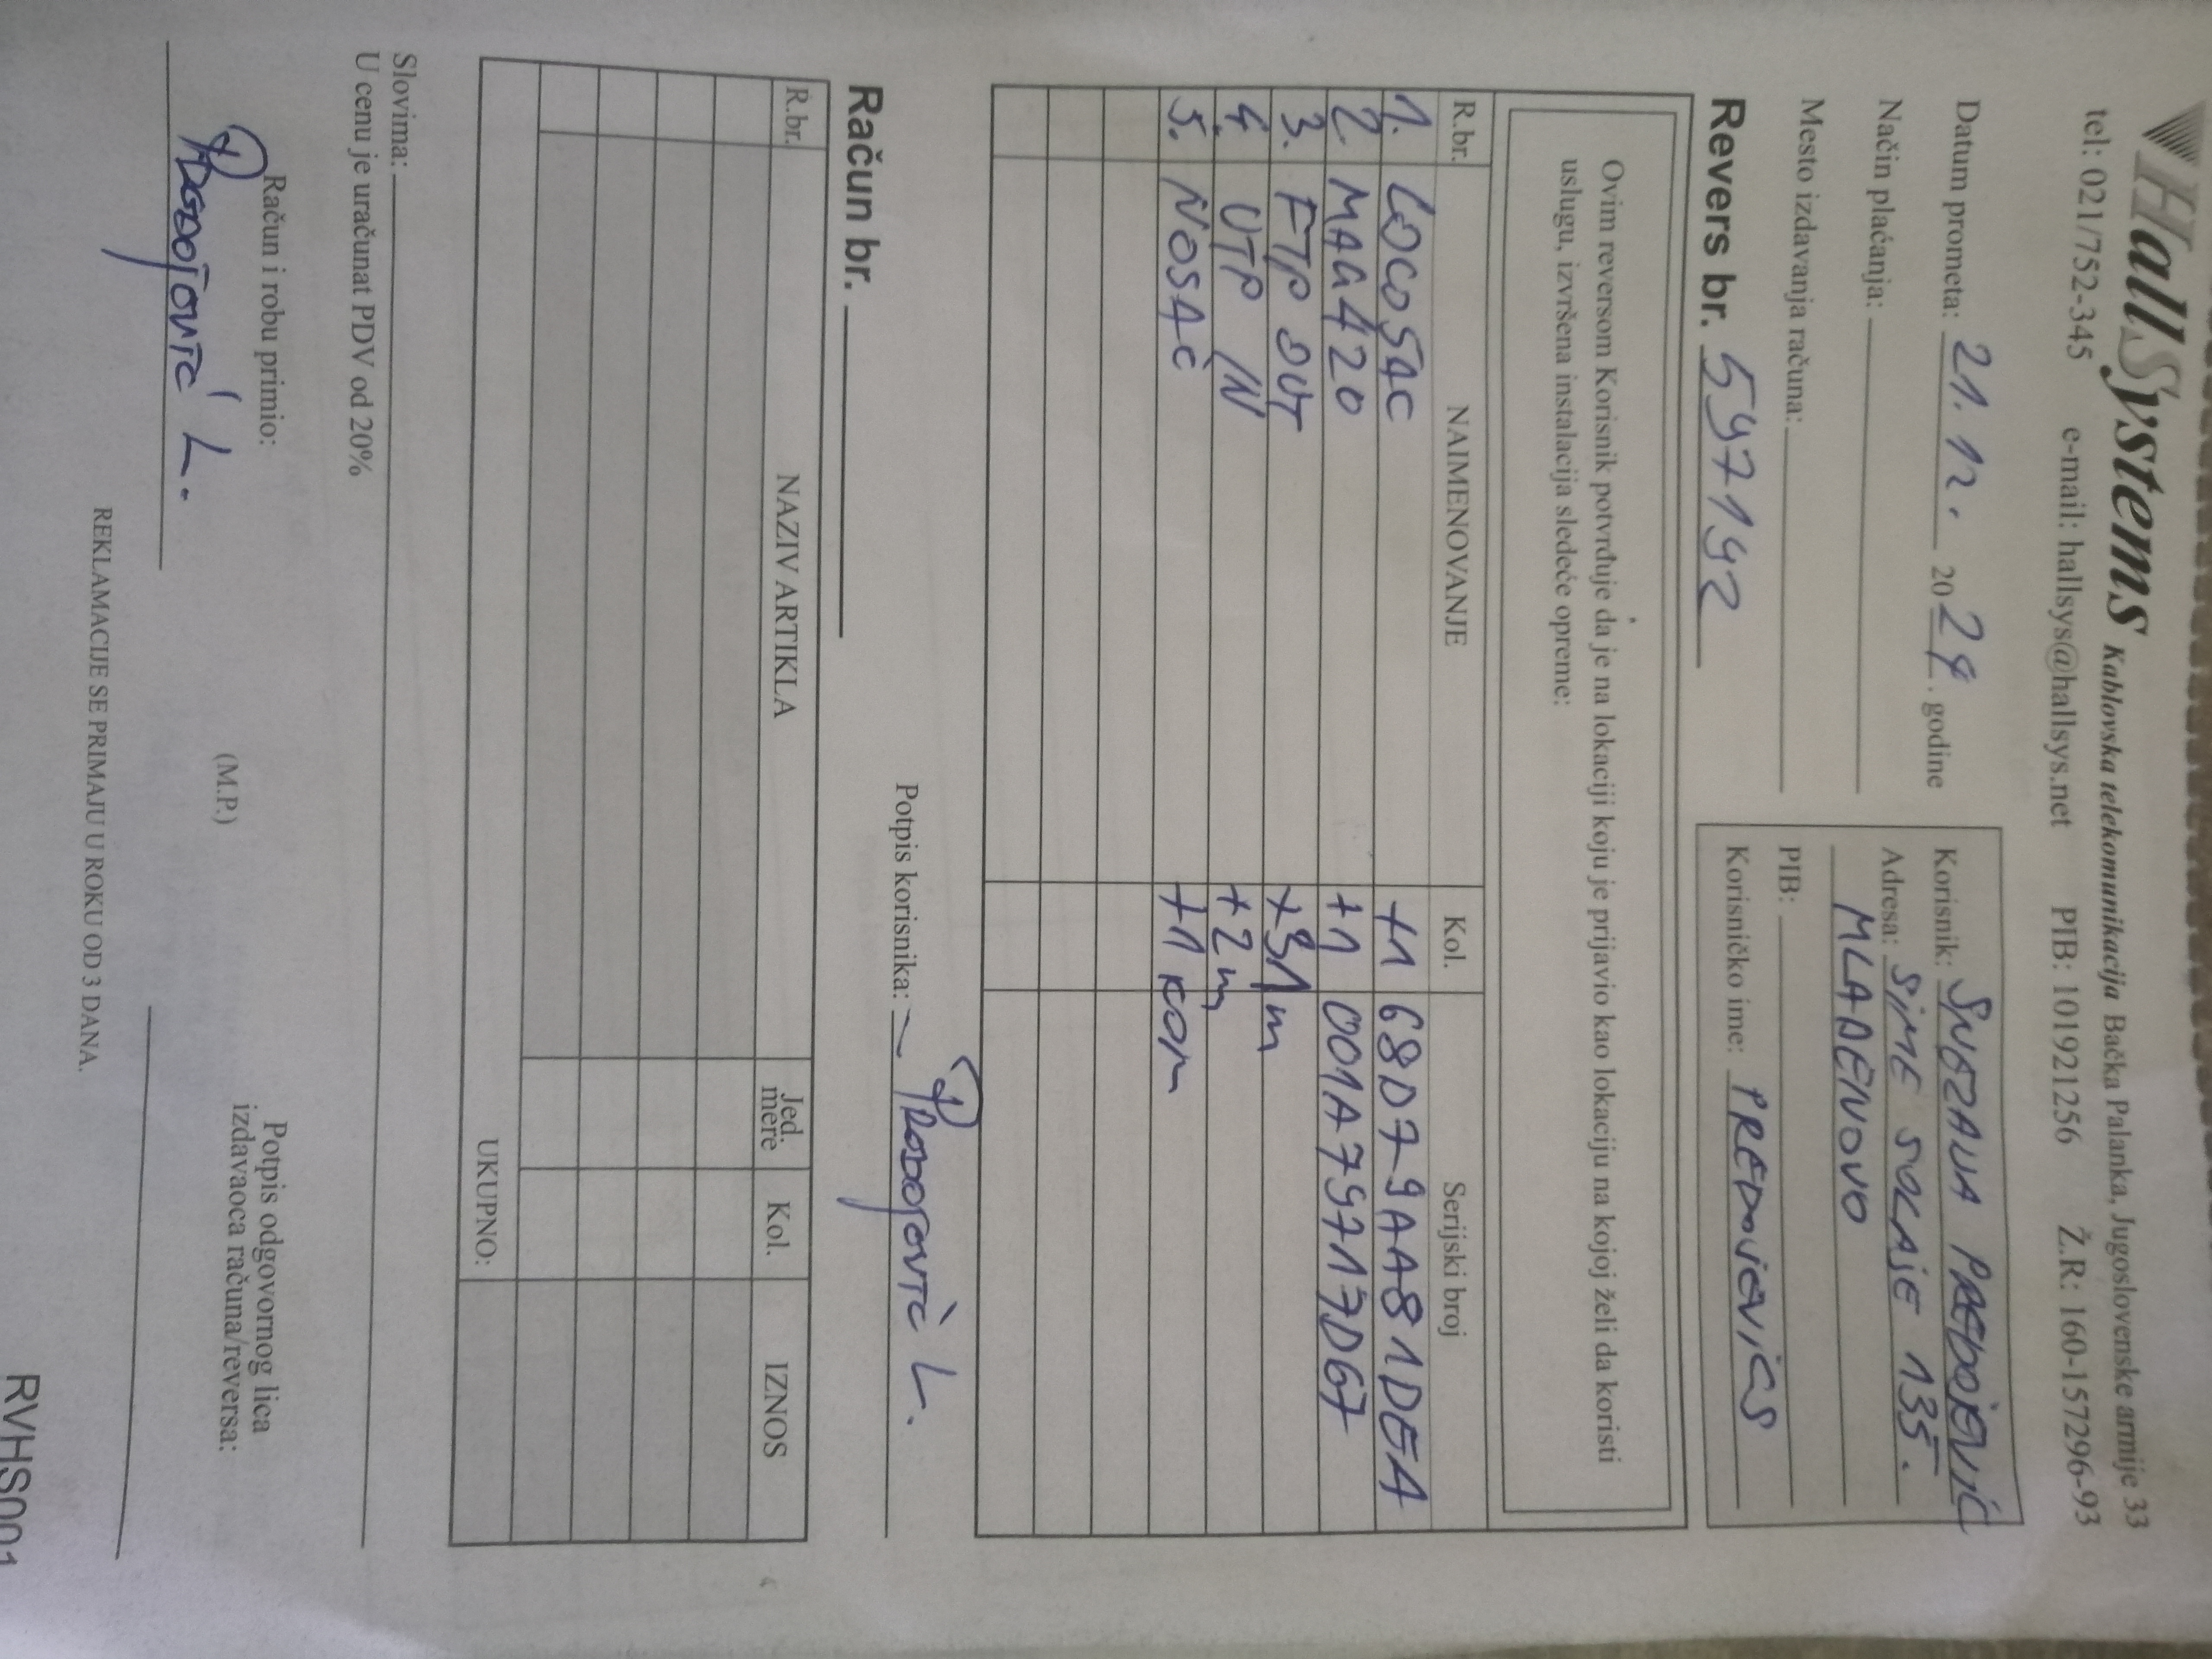 HallSystems Kablovska telekomunikacija Bačka Palanka, Jugoslovenske armije 33
tel: 021/752-345 e-mail: hallsys@hallsys.net PIB: 101921256 Ž.R: 160-157296-93
Datum prometa: 21.12. 2024. godine
Način plaćanja:
Mesto izdavanja računa:
Korisnik: SNEZANA PREDOJEVIĆ
Adresa: SIME SOLAJE 135.
MLADENOVO
PIB:
Korisničko ime: PREDOJEVICS
Revers br. 597192
Ovim reversom Korisnik potvrđuje da je na lokaciji koju je prijavio kao lokaciju na kojoj želi da koristi
uslugu, izvršena instalacija sledeće opreme:
R.br. NAIMENOVANJE Kol. Serijski broj
1. LOCO5AC +1 68D79AA81DEA
2. MAG420 +1 001A79717D67
3. FTP OUT +31m
4. UTP IN +2m
5. NOSAČ +1 KOM
Potpis korisnika:
Račun br.
R.br. NAZIV ARTIKLA Jed. mere Kol. IZNOS
UKUPNO:
Slovima:
U cenu je uračunat PDV od 20%
Račun i robu primio:
(M.P.)
Potpis odgovornog lica
izdavaoca računa/reversa:
REKLAMACIJE SE PRIMAJU U ROKU OD 3 DANA.
RVHS001